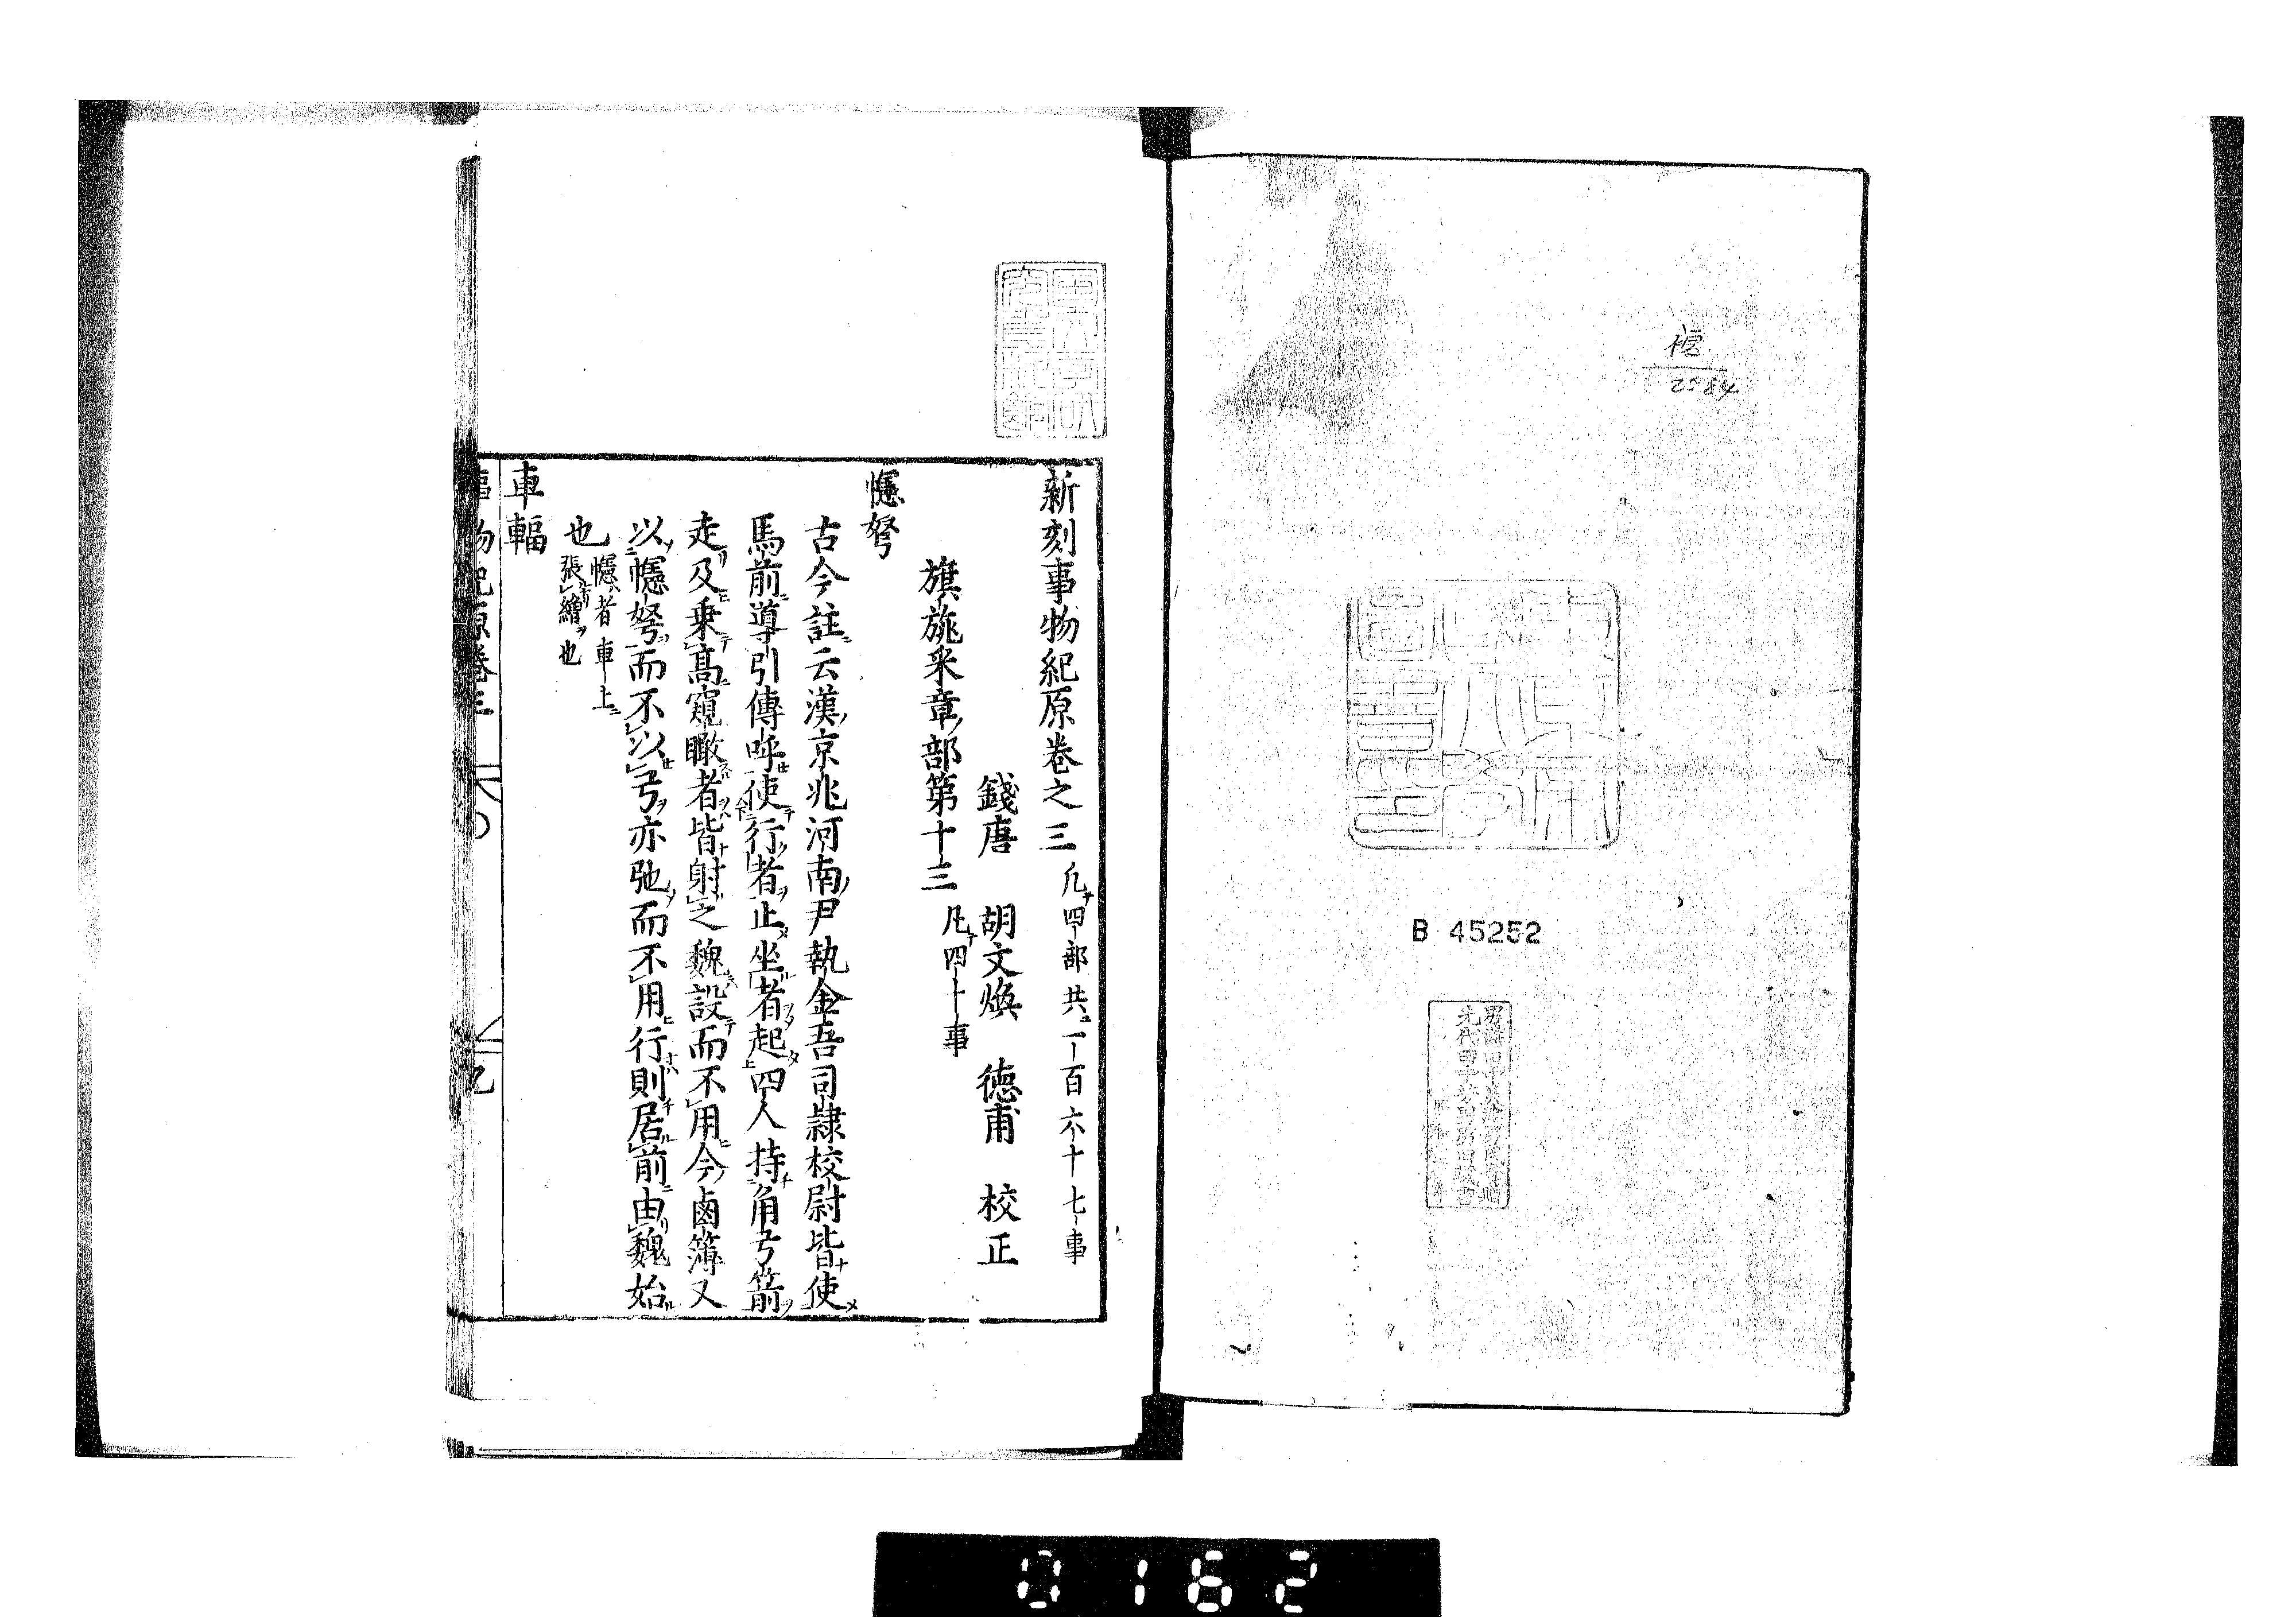 2584
B 45252
新刻事物紀原卷之三 凡四部共一百六十七事
錢唐 胡文煥 德甫 校正
旗旐采章部第十三 凡四十事
幰弩
古今註云漢京兆河南尹執金吾司隷校尉皆使
馬前導引傳呼使行者止坐者起四人持角弓箭
走及乗高窺瞰者皆射之魏設而不用今鹵簿又
以幰弩而不以弓亦弛而不用行則居前由魏始
也 幰者車上
張繒也
車輻
事物紀原卷三
0162